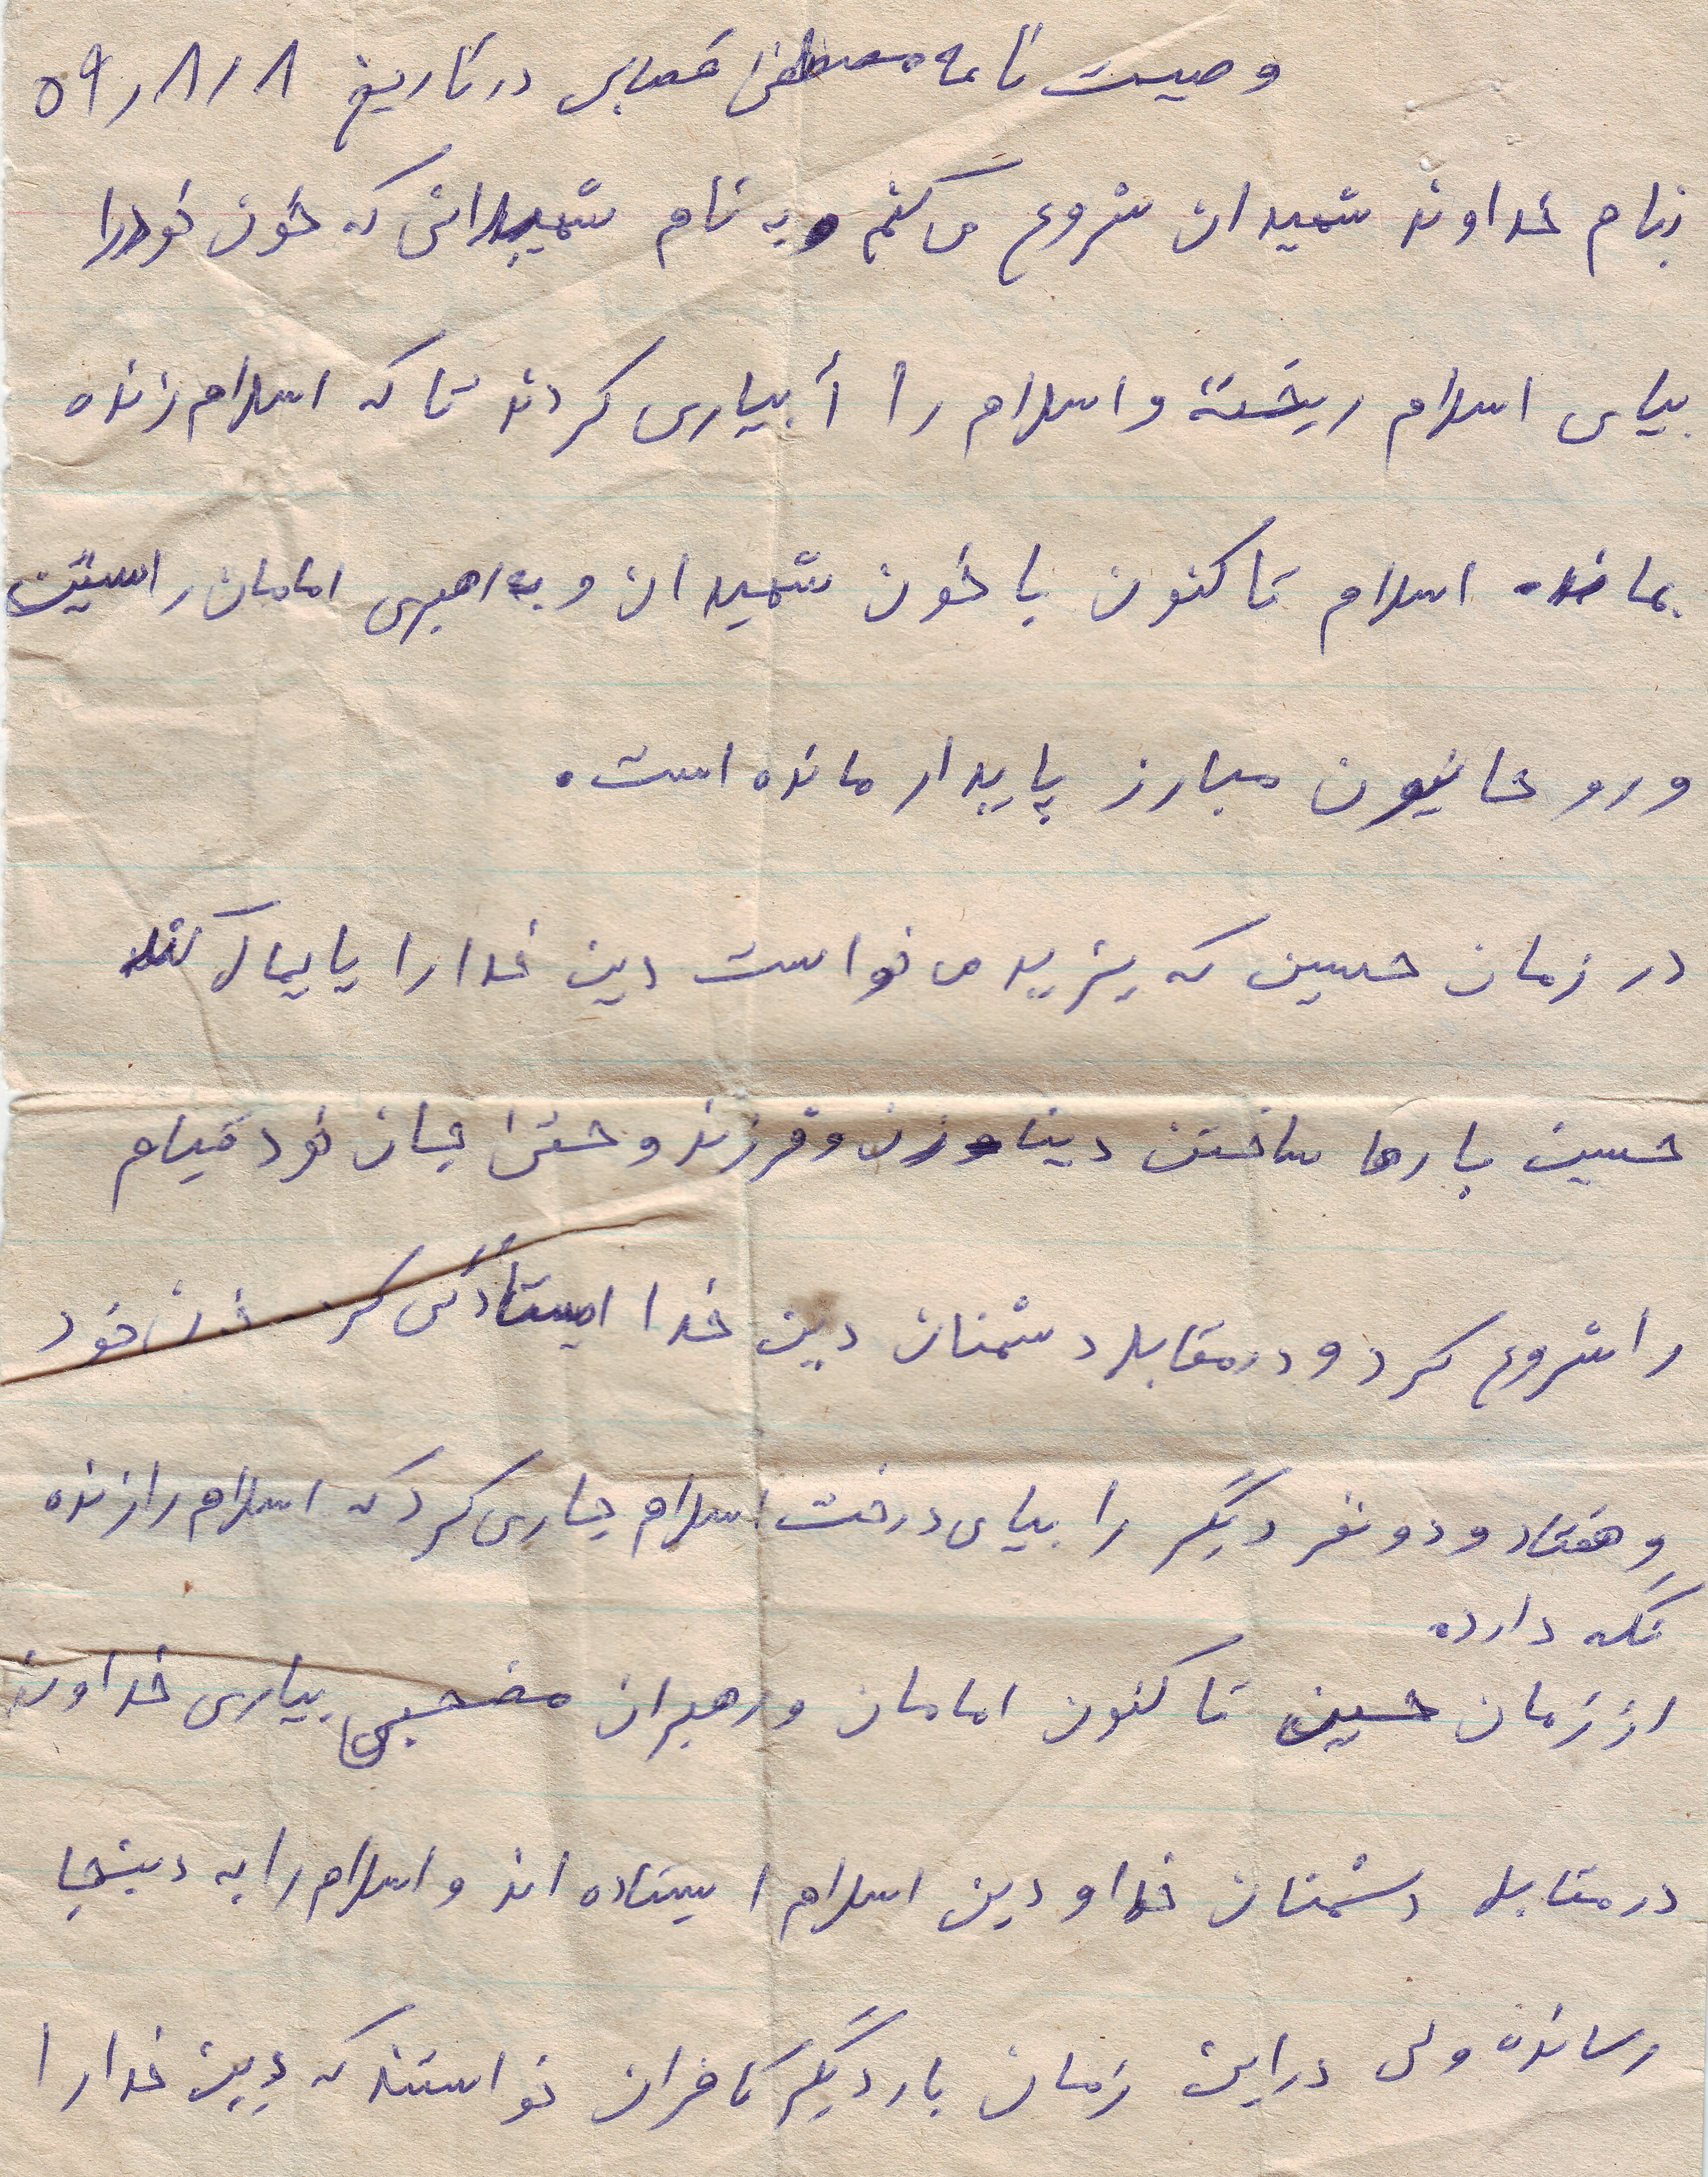 وصیت نامه مصطفی قصابی در تاریخ ۵۹/۸/۸
بنام خداوند شهیدان شروع می کنم و به نام شهیدانی که خون خود را
بپای اسلام ریخته و اسلام را آبیاری کردند تا که اسلام زنده
بماند. اسلام تا کنون با خون شهیدان و به رهبری امامان راستین
و روحانیون مبارز پایدار مانده است.
در زمان حسین که یزید می خواست دین خدا را پایمال کند
حسین با رها ساختن دینا و زن و فرزند و حتی جان خود قیام
را شروع کرد و در مقابل دشمنان دین خدا ایستادگی کرد خون خود
و هفتاد و دو نفر دیگر را بپای درخت اسلام جاری کرد که اسلام را زنده
نگه دارده
از زمان حسین تا کنون امامان و رهبران بیاری خداوند
در مقابل دشمنان خدا و دین اسلام ایستاده اند و اسلام را به دینجا
رسانده ولی در این زمان بار دیگر کافران خواستند که دین خدا را